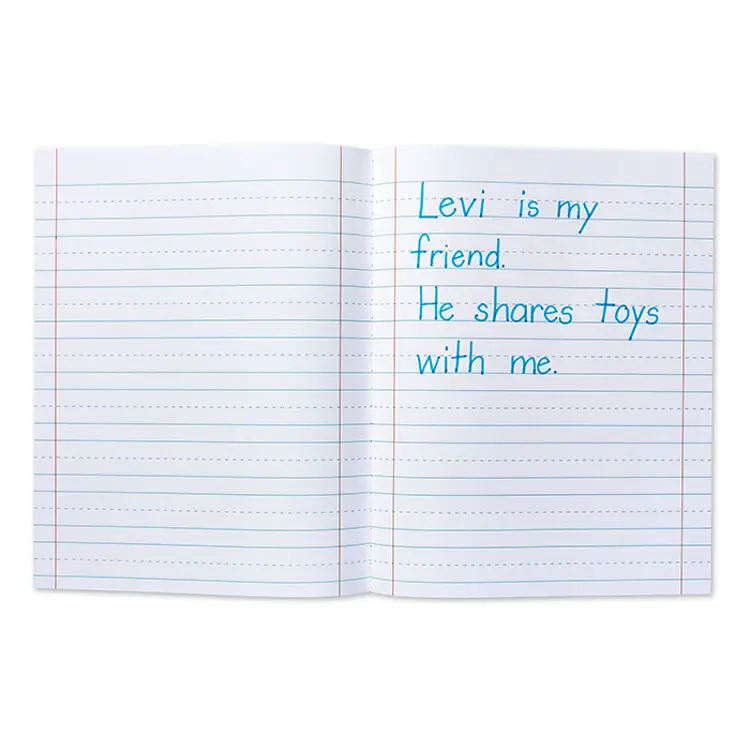 Levi is my
friend.
He shares toys
with me.